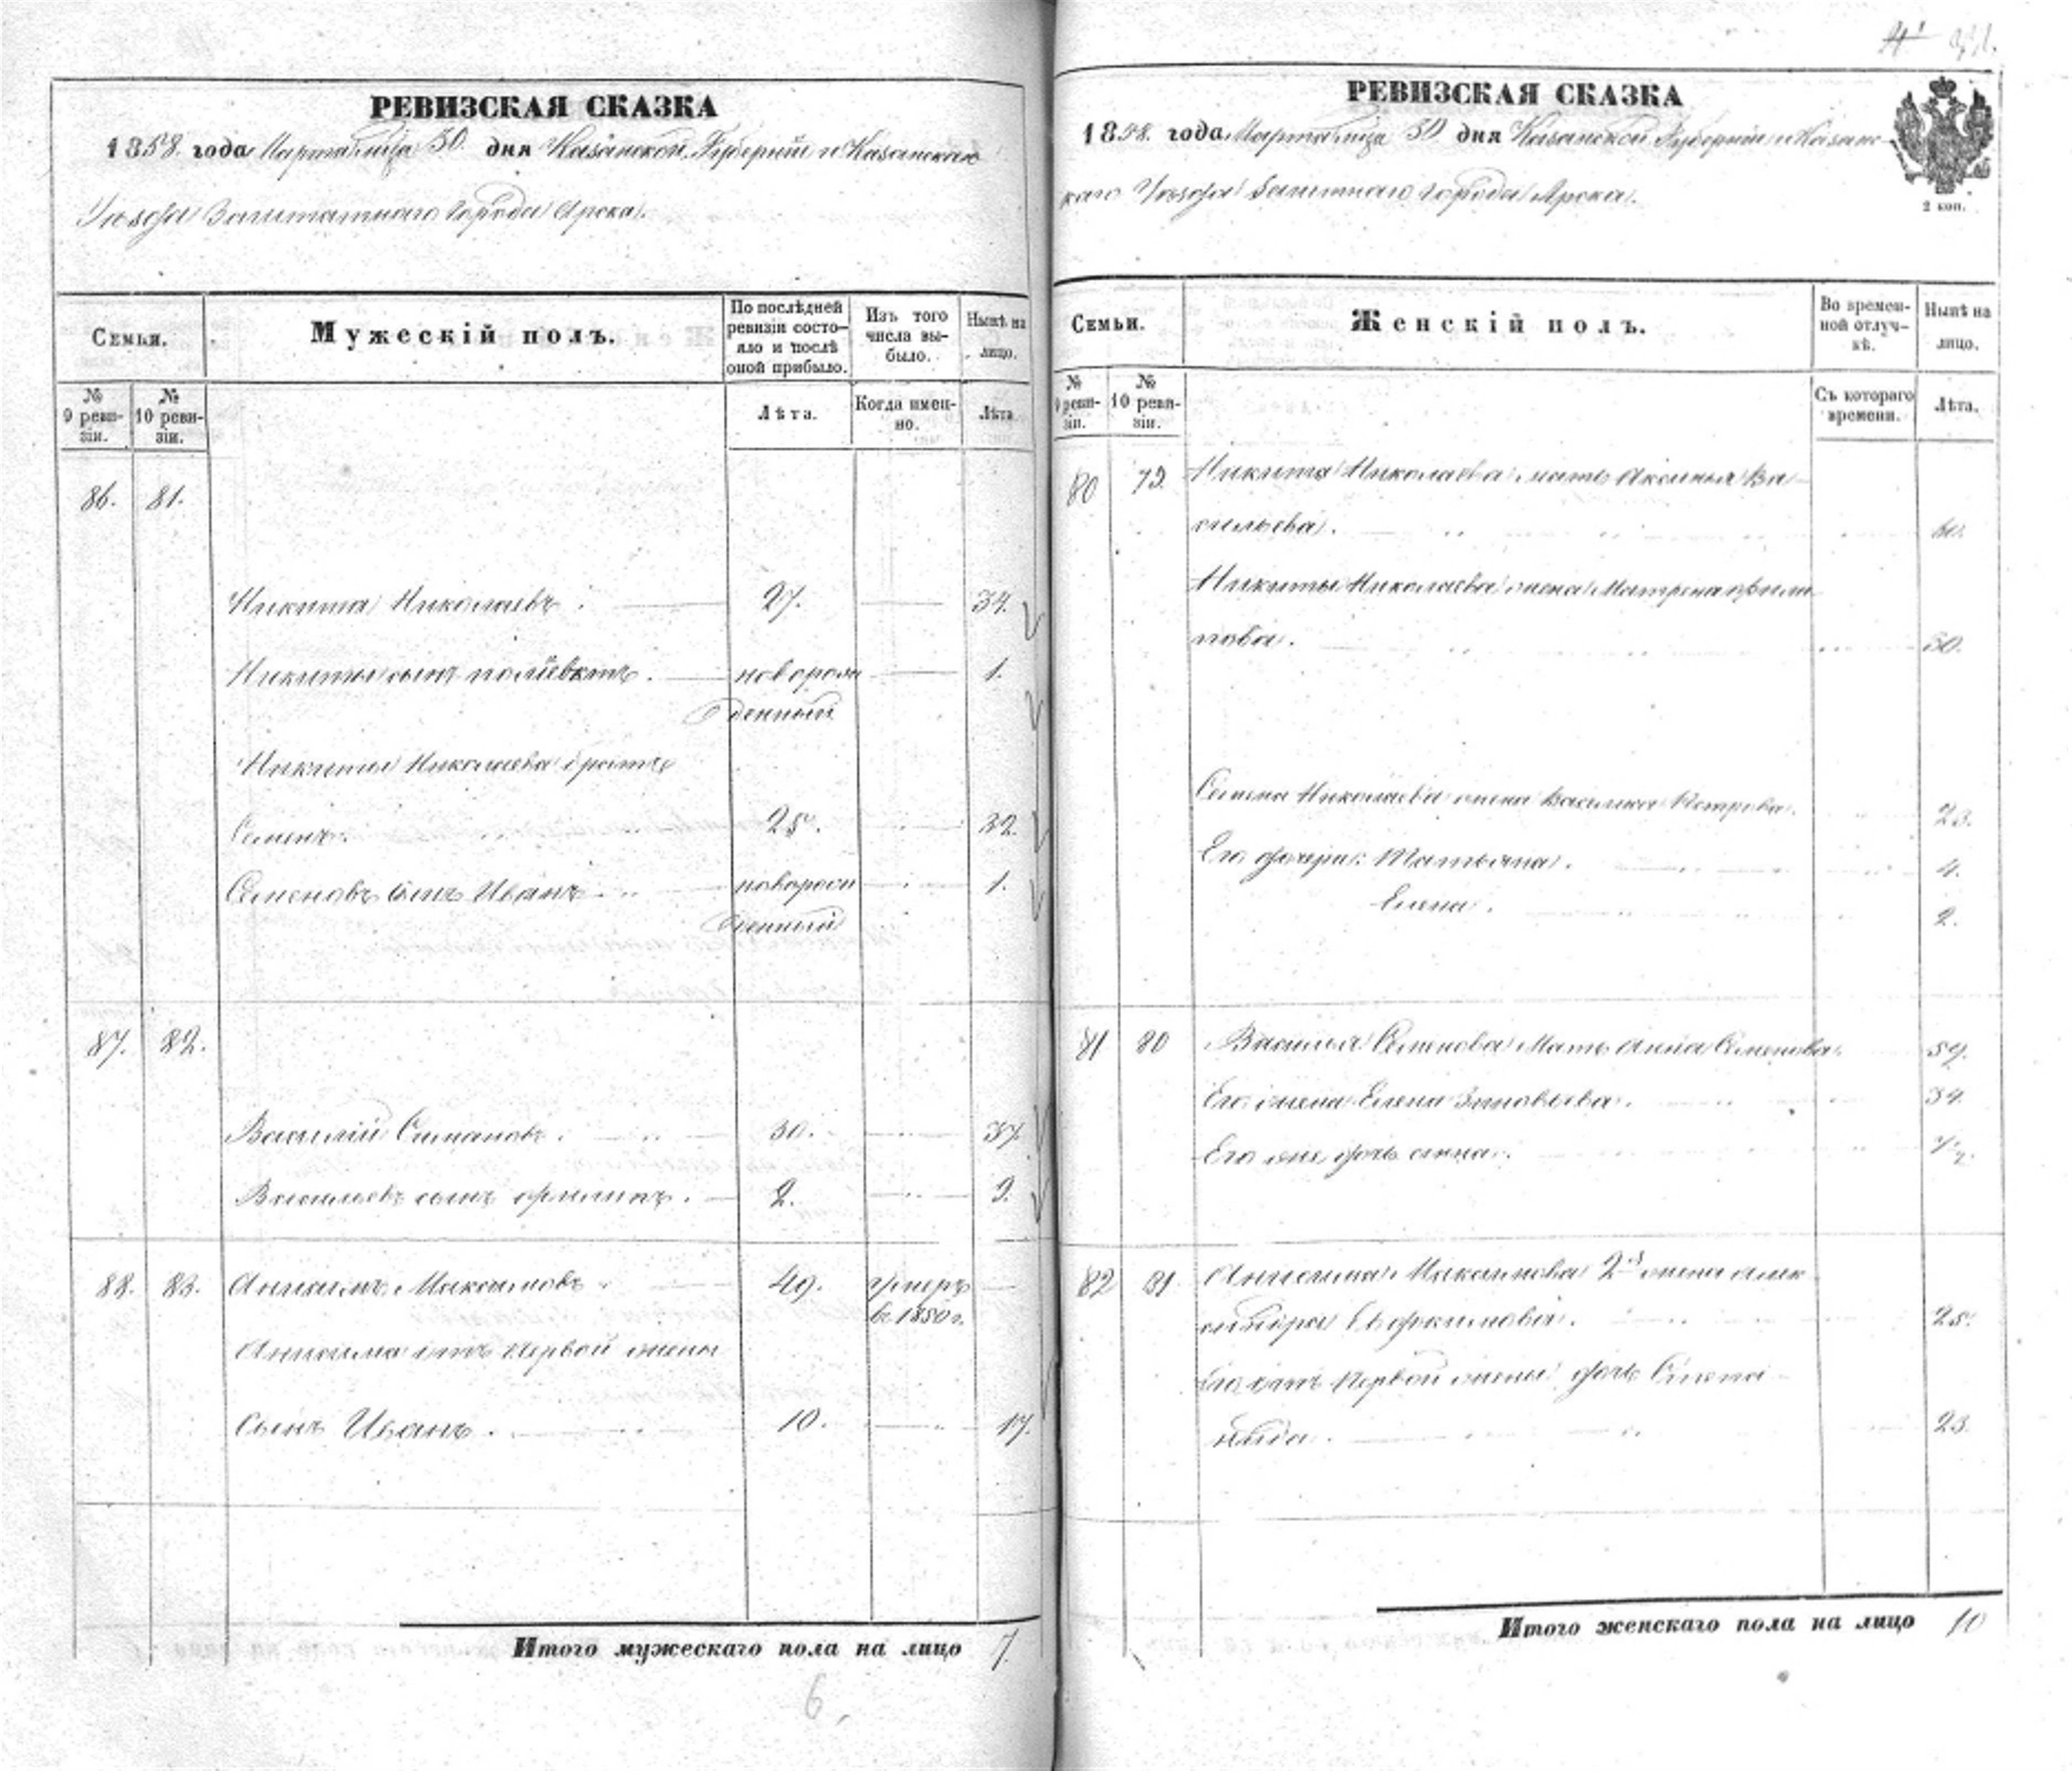 РЕВИЗСКАЯ СКАЗКА
1858. года Марта М͠ца 30. дня Казанской Губерніи и Казанскаго
Уѣзда Заштатнаго города Арска.
Семьи.
Мужескій полъ.
По послѣдней
ревизіи состо-
яло и послѣ
оной прибыло.
Изъ того
числа вы-
было.
Нынѣ на
лицо.
№
9 реви-
зіи.
№
10 реви-
зіи.
Лѣта.
Когда имен-
но.
Лѣта
86. 81.
Никита Николаевъ. 27. 34.
Никиты сынъ Поліевктъ. новорож 1.
денный
Никиты Николаева братъ
Семенъ. 25. 32.
Семеновъ сынъ Иванъ новорож 1.
денный
87. 82.
Василій Степановъ. 30. 37.
Васильевъ сынъ Филипъ. 2. 9.
88. 83. Анисимъ Максимовъ 49. умеръ
в 1850 г.
Анисима отъ первой жены
сынъ Иванъ. 10. 17.
Итого мужескаго пола на лицо 7.
6.
РЕВИЗСКАЯ СКАЗКА
1858. года Марта М͠ца 30 дня Казанской Губерніи и Казанс-
каго Уѣзда Заштатнаго города Арска.
2 коп.
Семьи.
Женскій полъ.
Во времен-
ной отлуч-
кѣ.
Нынѣ на
лицо.
№
9 реви-
зіи.
№
10 реви-
зіи.
Съ котораго
времени.
Лѣта.
80 79 Никиты Николаева мать Аксинья Ва-
сильева. 60.
Никиты Николаева жена Матрена Фили
пова. 30.
Семена Николаева жена Василиса Петрова. 23.
Его дочери: Татьяна. 4.
Елена. 2.
81 80 Василья Степанова мать Анна Семенова. 59.
Его жена Елена Зиновьева. 34.
Его же дочь Анна. 1/2.
82 81 Анисима Максимова 2я жена Алек
сандра Евфимова. 25.
Его отъ первой жены дочь Степа
нида. 23.
Итого женскаго пола на лицо 10